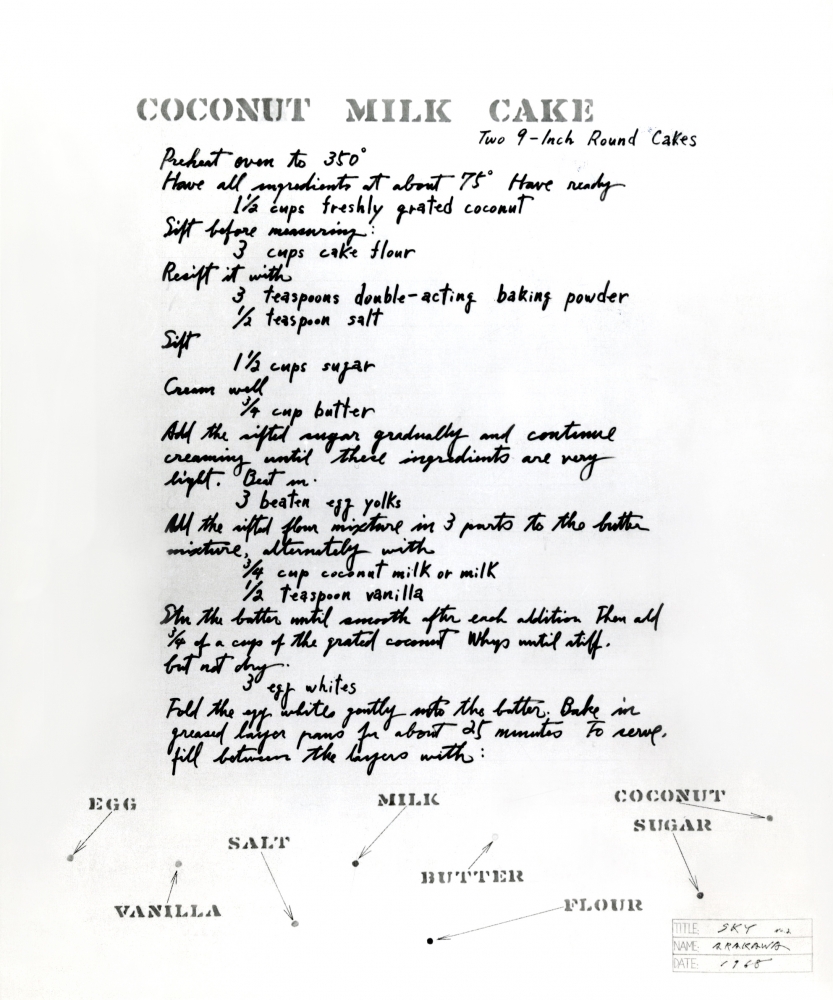 COCONUT MILK CAKE
Two 9-Inch Round Cakes
Preheat oven to 350°
Have all ingredients at about 75° Have ready
1½ cups freshly grated coconut
Sift before measuring:
3 cups cake flour
Resift it with
3 teaspoons double-acting baking powder
½ teaspoon salt
Sift
1½ cups sugar
Cream well
¾ cup butter
Add the sifted sugar gradually and continue
creaming until these ingredients are very
light. Beat in.
3 beaten egg yolks
Add the sifted flour mixture in 3 parts to the butter
mixture, alternately with
¾ cup coconut milk or milk
½ teaspoon vanilla
Stir the batter until smooth after each addition Then add
¾ of a cup of the grated coconut Whip until stiff.
but not dry.
3 egg whites
Fold the egg whites gently into the batter. Bake in
greased layer pans for about 25 minutes To serve,
fill between the layers with:
EGG
MILK
COCONUT
SUGAR
SALT
BUTTER
VANILLA
FLOUR
TITLE: SKY
NAME: ARAKAWA
DATE: 1968